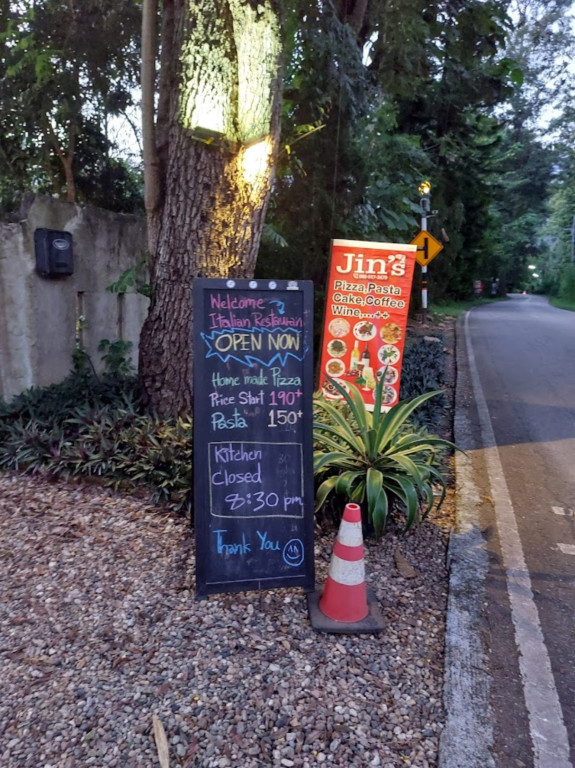 Welcome
Italian Restauran
OPEN NOW
Home made Pizza
Price Start 190+
Pasta 150+
Kitchen
Closed
8:30 pm
Thank You
Jin's
Pizza,Pasta
Cake,Coffee
Wine,....++